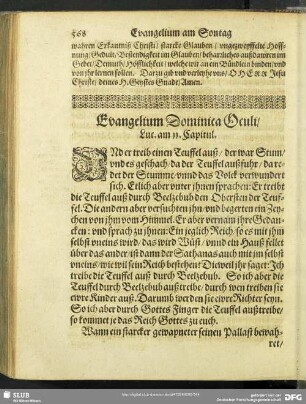 568 Evangelium am Sontag
wahren Erkantnuß Christi / starcke Glauben / ungezweyffelte Hoff-
nung / Gedult / Bestendigkeit im Glauben / beharrliches außdauren im
Gebet / Demuth / Höffligkeit / welche wir an ein Bündlein binden / und
von jhr lernen sollen. Darzu gib und verleyhe uns / O HErr Jesu
Christe / deines H. Geystes Gnade / Amen.
Evangelium Dominica Oculi /
Luc. am 11. Capitul.
UNd er treib einen Teuffel auß / der war Stum /
vnd es geschah da der Teuffel außfuhr / da re-
det der Stumme / vnnd das Volck verwundert
sich. Etlich aber vnter jhnen sprachen: Er treibt
die Teuffel auß durch Beelzebub den Obersten der Teuf-
fel. Die andern aber versuchten jhn / vnd begerten ein Zey-
chen von jhm vom Himmel. Er aber vernam jhre Gedan-
cken / vnd sprach zu jhnen: Ein jeglich Reich / so es mit jhm
selbst vneins wird / das wird Wüst / vnnd ein Hauß fellet
über das ander / ist dann der Sathanas auch mit jm selbst
vneins / wie wil sein Reich bestehen? Dieweil jhr saget: Ich
treibe die Teuffel auß durch Beelzebub. So ich aber die
Teuffel durch Beelzebub außtreibe / durch wen treiben sie
ewre Kinder auß? Darumb werden sie ewre Richter seyn.
So ich aber durch Gottes Finger die Teuffel außtreibe /
so kommet je das Reich Gottes zu euch.
Wann ein starcker gewapneter seinen Pallast bewah-
ret /
SLUB
DFG